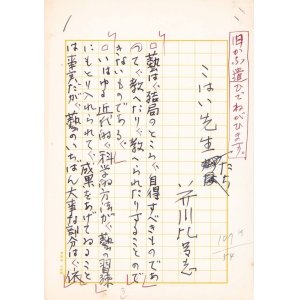 旧かな遣ひでねがひます。
こはい先生たち
芥川比呂志
藝は、結局のところ、自得すべきものであ
つて、教へたり、教へられたりすることので
きないものである。
いはゆる近代的、科学的方法が、藝の習練
にもとり入れられて、成果をあげてゐること
は事実だが、藝のいちばん大事な部分は、依